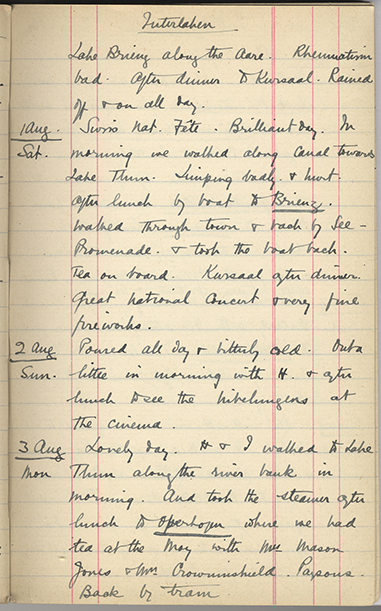 Interlaken
Lake Brienz along the Aare. Rheumatism
bad. After dinner to Kursaal. Rained
off & on all day.
1 Aug. Swiss Nat. Fête. Brilliant day. In
Sat. morning we walked along canal towards
Lake Thun. Limping badly & hurt.
After lunch by boat to Brienz.
Walked through town & back by See-
Promenade. & took the boat back.
Tea on board. Kursaal after dinner.
Great national concert & very fine
fireworks.
2 Aug Poured all day & bitterly cold. Out a
Sun. little in morning with H. & after
lunch to see the Nibelungers at
the cinema.
3 Aug Lovely day. H & I walked to Lake
Mon Thun along the river bank in
morning. And took the steamer after
lunch to where we had
tea at the May with Mrs Mason
Jones & Mrs Crowninshield. Parsons.
Back by tram